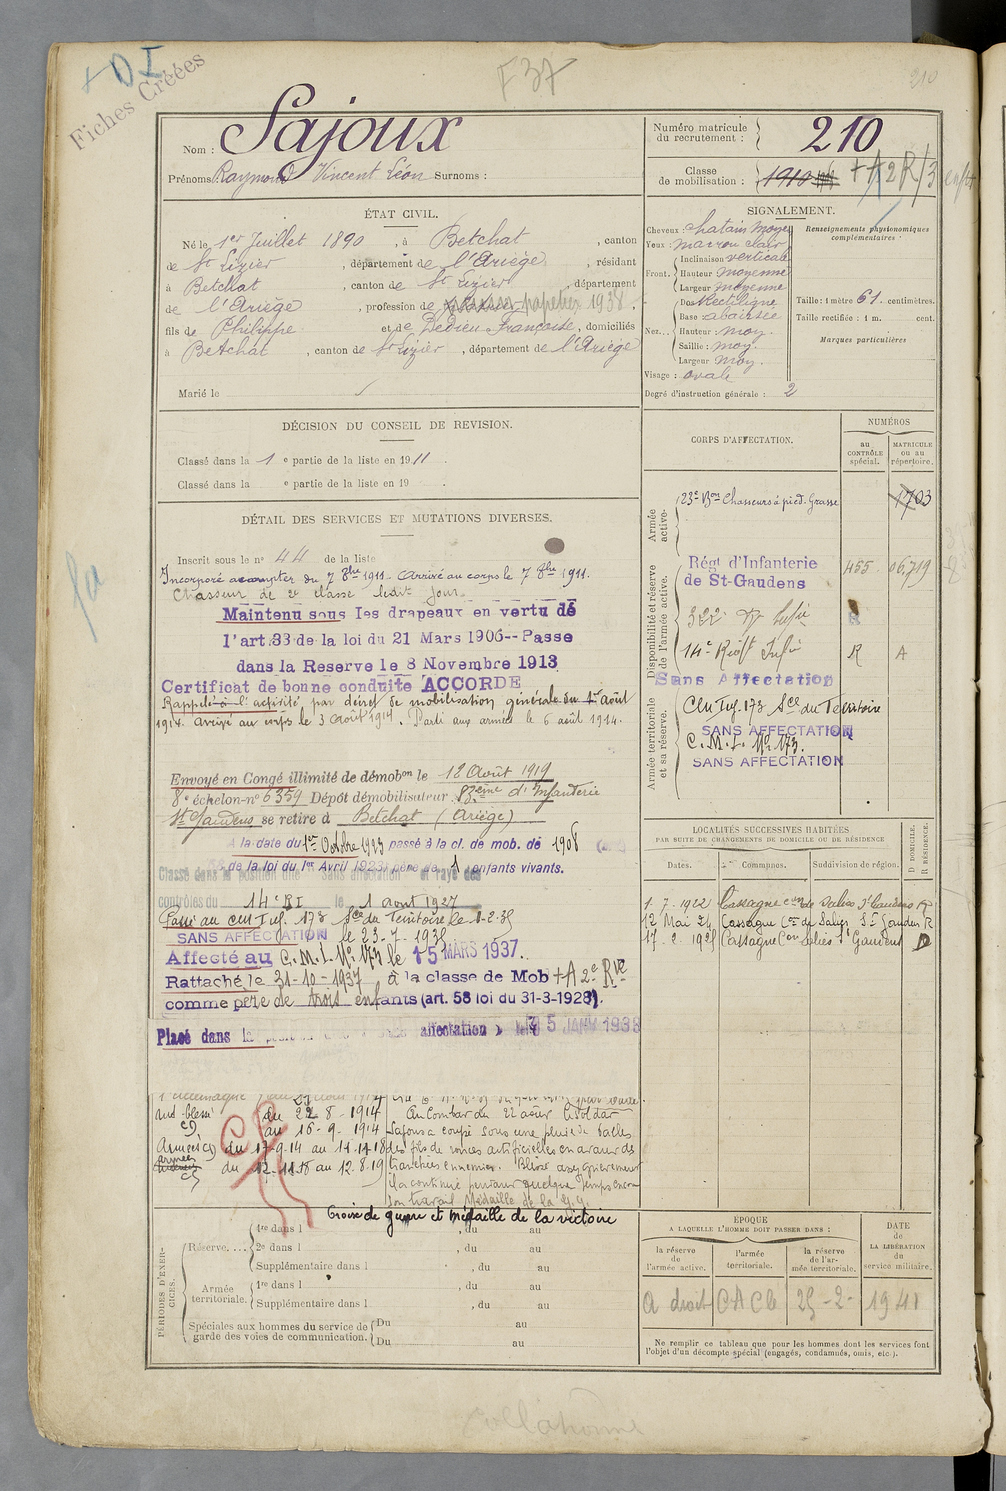 + DI
Fiches Créées
F 37
210
Nom : Sajoux
Prénoms : Raymond Vincent Léon Surnoms :
Numéro matricule du recrutement : 210
Classe de mobilisation : 1910 + A 2 R/3
ÉTAT CIVIL.
Né le 1er Juillet 1890, à Betchat, canton
de St Lizier, département de l'Ariège, résidant
à Betchat, canton de St Lizier, département
de l'Ariège, profession de papetier 1938.
fils de Philippe et de Dedieu Françoise, domiciliés
à Betchat, canton de St Lizier, département de l'Ariège
Marié le
SIGNALEMENT.
Cheveux : chatain moyen
Yeux : marron clair
Front. Inclinaison verticale
Hauteur moyenne
Largeur moyenne
Nez... Dos Rectiligne
Base abaissée
Hauteur : moy.
Saillie : moy.
Largeur moy.
Visage : ovale
Degré d'instruction générale : 2
Renseignements physionomiques complémentaires :
Taille : 1 mètre 61 centimètres.
Taille rectifiée : 1 m. cent.
Marques particulières
DÉCISION DU CONSEIL DE REVISION.
Classé dans la 1e partie de la liste en 1911.
Classé dans la e partie de la liste en 19 .
DÉTAIL DES SERVICES ET MUTATIONS DIVERSES.
Inscrit sous le no 44 de la liste
Incorporé à compter du 7 8bre 1911. Arrivé au corps le 7 8bre 1911.
Chasseur de 2e classe ledit jour.
Maintenu sous les drapeaux en vertu de
l'art.33 de la loi du 21 Mars 1905--Passe
dans la Reserve le 8 Novembre 1913
Certificat de bonne conduite ACCORDÉ
Rappelé à l'activité par décret de mobilisation générale du 1er août
1914. Arrivé au corps le 3 août 1914. Parti aux armées le 6 août 1914.
Envoyé en Congé illimité de démobon le 12 Août 1919
8e échelon-no 6359 Dépôt démobilisateur 83eme d'Infanterie
St Gaudens se retire à Betchat (Ariège)
A la date du 1er Octobre 1923 passé à la cl. de mob. de 1908
de la loi du 1er Avril 1923, père de 1 enfants vivants.
Classé dans la position dite sans affectation et rayé des
contrôles du 14e RI le 1 aout 1927
Passé au cen Tuf. 173 Sce du Territoire le 1-2-35
SANS AFFECTATION le 23-7-1935
Affecté au C.M.I. No 173 le 15 MARS 1937.
Rattaché le 31-10-1937 à la classe de Mob + A 2e Rve
comme père de trois enfants (art. 58 loi du 31-3-1928).
Placé dans la affectation » le 5 JANV 1938
du 22-8-1914
au 16-9-1914
du 17-9-14 au 11-11-18
du 12-11-18 au 12.8.19
Au Combat du 22 août le soldat
Sajoux a coupé sous une pluie de balles
des fils de ronces artificielles en avant des
tranchées ennemies. Blessé assez grièvement
il a continué pendant quelque temps encore
son travail Médaille de la G.G.
Croix de guerre et médaille de la victoire
CORPS D'AFFECTATION.
NUMÉROS
au CONTRÔLE spécial.
MATRICULE ou au répertoire.
Armée active.
23e Bon Chasseurs à pied. Grasse 1703
Disponibilité et réserve de l'armée active.
Régt d'Infanterie
de St-Gaudens 455 06719
14e Régt Infie R A
Sans Affectation
Armée territoriale et sa réserve.
Cen Tuf. 173 Sce du Territoire
SANS AFFECTATION
C.M.I. No 173.
SANS AFFECTATION
LOCALITÉS SUCCESSIVES HABITÉES
PAR SUITE DE CHANGEMENTS DE DOMICILE OU DE RÉSIDENCE
D DOMICILE. R RÉSIDENCE.
Dates. Communes. Subdivision de région.
1. 7. 1922 Cassagne con de Salies St Gaudens R
12 Mai 24 Cassagne Con de Salies St Gaudens R
17. 2. 1928 Cassagne Con Salies St Gaudens D
PÉRIODES D'EXERCICES.
Réserve.... 1re dans l , du au
2e dans l , du au
Supplémentaire dans l , du au
Armée territoriale. 1re dans l , du au
Supplémentaire dans l , du au
Spéciales aux hommes du service de garde des voies de communication. Du au
Du au
ÉPOQUE
A LAQUELLE L'HOMME DOIT PASSER DANS :
la réserve de l'armée active.
l'armée territoriale.
la réserve de l'armée territoriale.
DATE de LA LIBÉRATION du service militaire.
A droit C A C b 25-2- 1941
Ne remplir ce tableau que pour les hommes dont les services font
l'objet d'un décompte spécial (engagés, condamnés, omis, etc.).